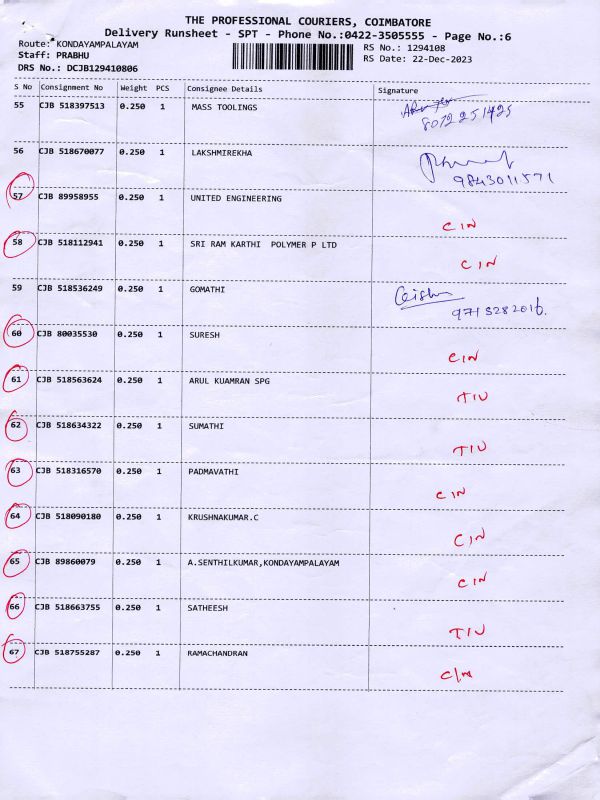 THE PROFESSIONAL COURIERS, COIMBATORE
Delivery Runsheet - SPT - Phone No.:0422-3505555 - Page No.:6
Route: KONDAYAMPALAYAM RS No.: 1294108
Staff: PRABHU RS Date: 22-Dec-2023
DRS No.: DCJB129410806
S No Consignment No Weight PCS Consignee Details Signature
55 CJB 518397513 0.250 1 MASS TOOLINGS
8072251425
56 CJB 518670077 0.250 1 LAKSHMIREKHA
9843011571
57 CJB 89958955 0.250 1 UNITED ENGINEERING
CIN
58 CJB 518112941 0.250 1 SRI RAM KARTHI POLYMER P LTD
CIN
59 CJB 518536249 0.250 1 GOMATHI
9713282016.
60 CJB 80035530 0.250 1 SURESH
CIN
61 CJB 518563624 0.250 1 ARUL KUAMRAN SPG
TIU
62 CJB 518634322 0.250 1 SUMATHI
TIU
63 CJB 518316570 0.250 1 PADMAVATHI
CIN
64 CJB 518090180 0.250 1 KRUSHNAKUMAR.C
CIN
65 CJB 89860079 0.250 1 A.SENTHILKUMAR,KONDAYAMPALAYAM
CIN
66 CJB 518663755 0.250 1 SATHEESH
TIU
67 CJB 518755287 0.250 1 RAMACHANDRAN